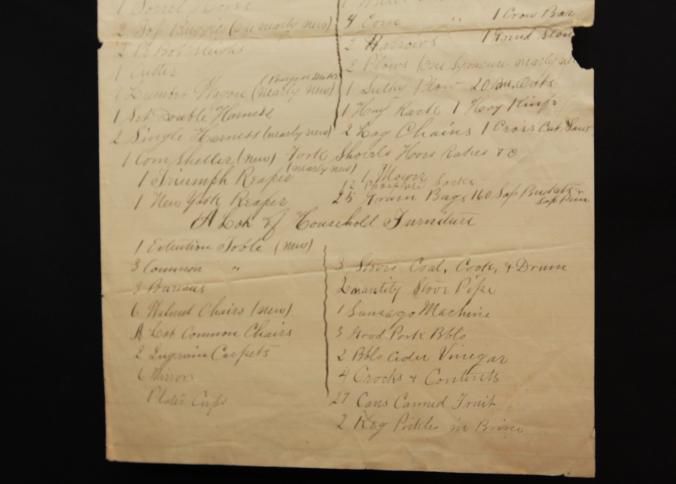 1 Horse
2 Top Buggies (one nearly new)
2 Pr Bob Sleighs
1 Cutter
1 Lumber Wagon (nearly new)
1 Set Double Harness
2 Single Harness (nearly new)
1 Corn Sheller (new) Fork Shovels Hoes Rakes & C
1 Triumph Reaper (nearly new)
1 New York Reaper
4 Cone " 1 Crow Bar
2 Harrows 1 Grind Stone
2 Plows One Syracuse nearly new
1 Sulky Plow 20 Bu. Oats
1 Hay Rack 1 Hay Knife
2 Log Chains 1 Cross Cut Saw
1 Mower
12 Phosphate Sacks
25 Grain Bags 160 Sap Buckets
Sap Pan
A Lot of Household Furniture
1 Extention Table (new)
3 Common "
3 Bureaus
6 Walnut Chairs (new)
A Lot Common Chairs
2 Ingrain Carpets
6 Mirrors
Plates Cups
3 Stoves Coal, Cook, & Drum
Quantity Stove Pipe
1 Sausage Machine
3 Pork Bbls
2 Bbls Cider Vinegar
4 Crocks & Contents
27 Cans Canned Fruit
2 Keg Pickles in Brine